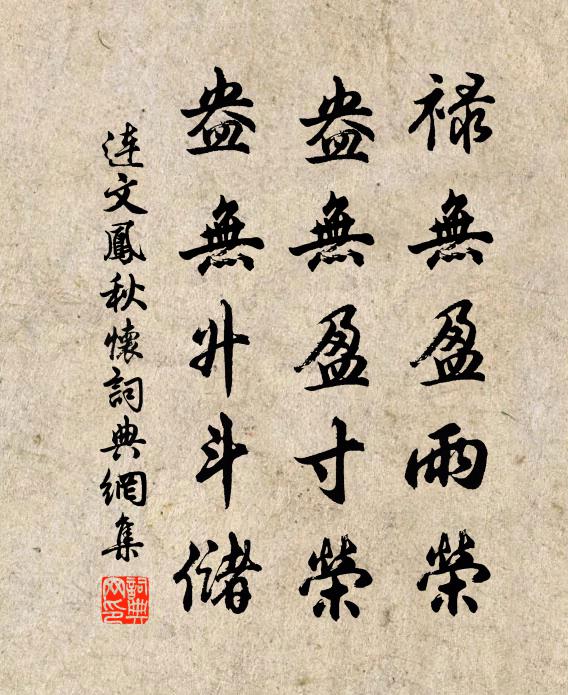 禄無盈雨榮
盎無盈寸榮
盎無升斗儲
連文鳳秋懷詞典網集
詞典網印